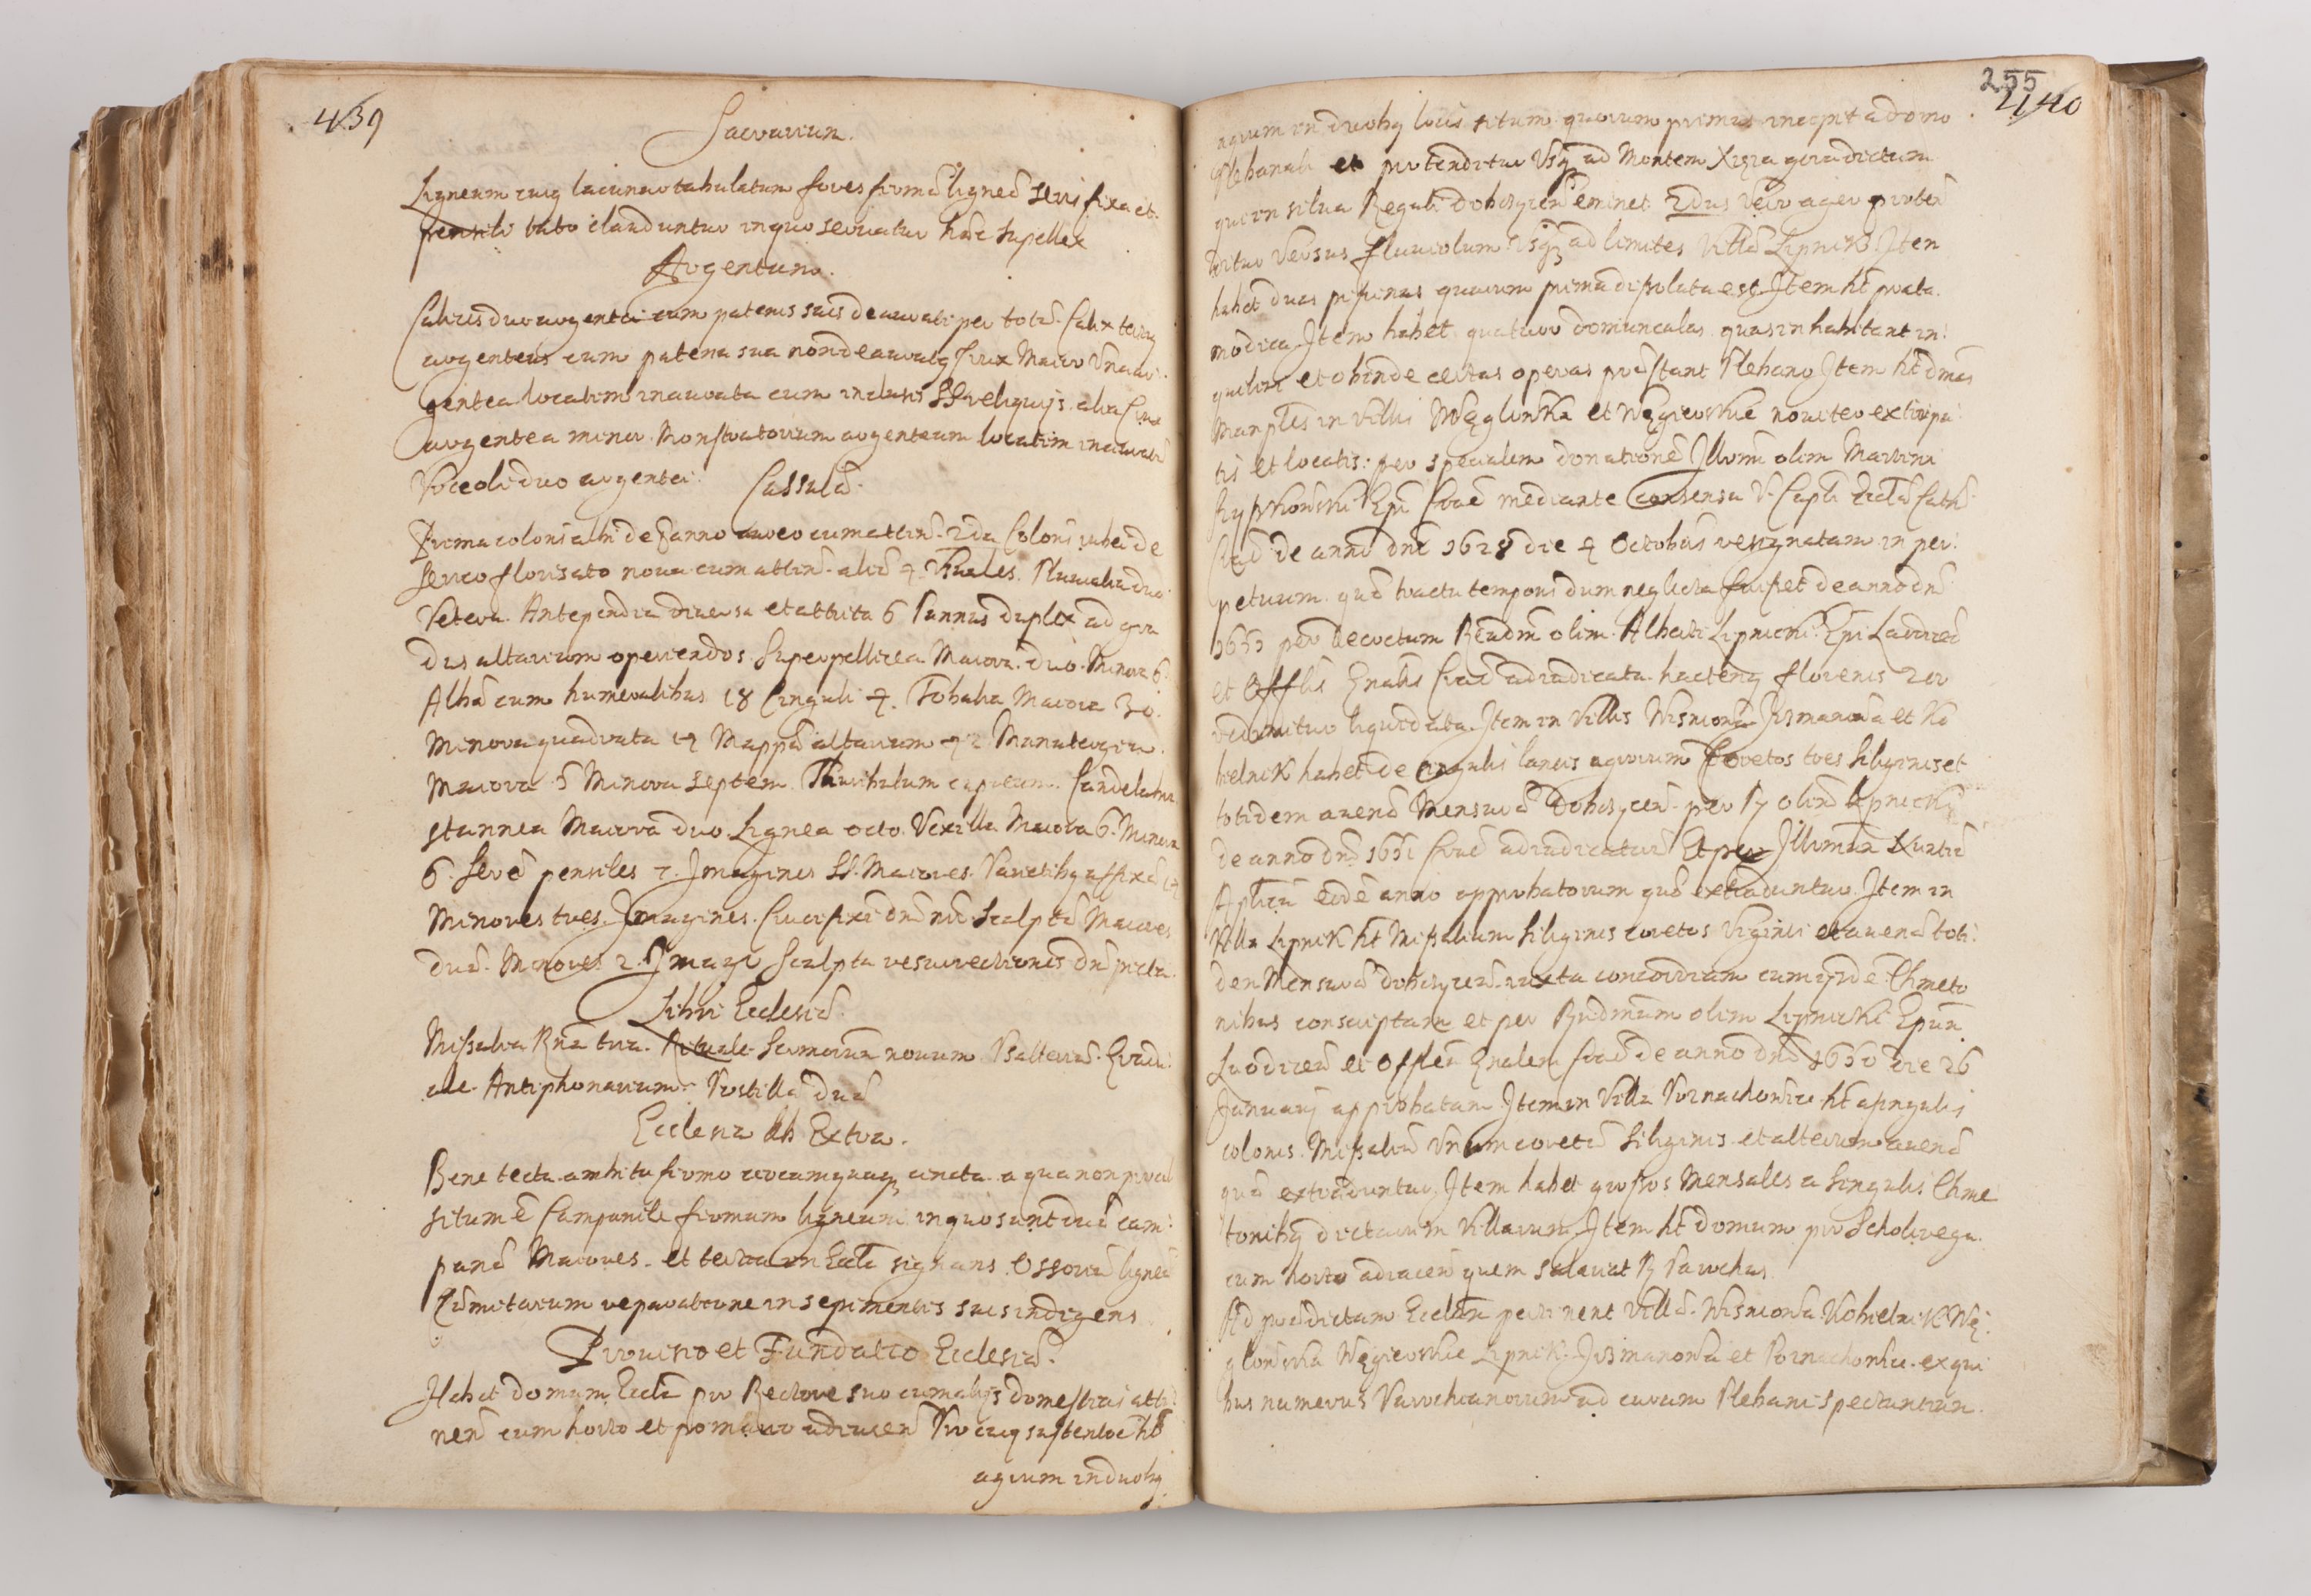 439
Sacrarium.
Ligneum cuiq lacunar tabulatum fores firmæ ligneæ seris fixa et
pensili tuto clauduntur in quo seruatur hæc supellex
Argentum.
Calices duo argentei cum patenis suis deaurati per totũ. Calix tertiq
argenteus cum patena sua non deauratq Crux Maior Una ar-
gentea locatim inaurata cum inclusis SS reliquijs. alia Crux
argentea minor. Monstratorium argenteum locatim inauratũ
Vrceoli duo argentei. Cassulæ.
Prima coloris albi de panno aureo cum attin. 2da Coloris rubei de
serico florisato noua cum attin. aliæ 4. Pluuialia duo
Vetera. Antependia diuersa et attrita 6 Pannus duplex ad gra
dus altarium operiendos. Superpellicea Maiora. duo. Minora 6.
Albæ cum humeralibus 18 Cinguli 4. Tobalia Maiora 30.
Minora quadrata 14 Mappæ altarium 42 Manutergia.
Maiora 5 Minora septem. Thuribulum cupreum. Candelabra
stannea Maiora duo. Lignea octo. Vexilla Maiora 6. Minora
6. Seræ pensiles 7. Imagines SS. Maiores. Parietibq affixæ 14
Minores tres. Imagines. Crucifixi dñi nri Scalptæ Maiores
duæ. Minores 2. Imago Scalpta resurrectionis dñi picta.
Libri Ecclesiæ.
Missalia Rña tria. Rituale Sacrorum nouum. Psalteriũ. Gradu-
ale. Antiphonarium. Postillæ duæ
Ecclesia Ab Extra.
Bene tecta ambitu firmo circumquaq cincta. a qua non procul
situm ẽ Campanile firmum ligneum in quo sunt duæ cam-
panæ Maiores. et tertia in Eccła signans. Ossoriũ ligneũ
Cæmitarium reparatione in sepimentis suis indigens
Prouisio et Fundatio Ecclesiæ.
Habet domum Eccła pro Rectore suo cum alijs domesticis atti-
nen cum horto et pomario adiacen Pro cuiq sustentõe ht
agrum in duobq
255
440
agrum in duobq locis situm quorum primus incipit a domo
Plebanali et protenditur Usq ad Montem Xięża gora dictum
qui in silua Regali Dobczycen eminet 2dus Vero ager proten
ditur Versus fluuiolum Usq ad limites Villæ Lipnik Item
habet duas piscinas quarum prima dissoluta est. Item ht prata.
modica. Item habet quatuor domunculas quas inhabitant in-
quilini et ob inde certas operas præstant Plebano Item ht dmas
Manples in Villis Węglinka et Węgierskie nouiter extirpa-
tis et locatis: per specialem donationẽ Illmi olim Martini
Szyszkowski Epi Crac mediante Consensu V. Capli Ecclæ Cath
Crac de anno dni 1628 die 4 Octobris resignatam in per-
petuum quæ tractu temporis dum neglecta fuisset de anno dni
1653 per decretum Rendmi olim Alberti Lipnicki Epi Laodicen
et Offlis Gnalis Crac adiudicata. hacteng florenis 200
redimitur liquidata. Item in Villis Wisniowa Jizmanowa et Ko
bielnik habet de singulis laneis agrorum Coretos tres siliginis et
totidem auenæ Mensuræ Dobczycen. per olim Lipnicki
de anno dni 1651 Crac adiudicatũ Et per Illmum Nuntiũ
Aplicũ eodẽ anno approbatorum quæ extraduntur. Item in
Villa Lipnik ht Missalium Siliginis coretos Viginti et auenæ toti-
dem Mensuræ Dobczycen. iuxta concordiam cum ijsdẽ Chmeto
nibus conscriptam et per Rndmum olim Lipnicki Epum
Laodicen et Offlem Gnalem Crac de anno dni 1650 die 26
Januarij approbatam Item in Villa ht a singulis
colonis. Missaliũ Unum coretũ Siliginis et alterum auenæ
quæ extraduntur. Item habet grossos Mensales a Singulis Chme
tonibq dictarum Villarum. Item ht domum pro Scholirega.
cum horto adiacen quem salariat R Parochus.
Ad prædictam Ecclam pertinent Villæ. Wisniowa Kobielnik Wę-
glowka Węgierskie Lipnik. Jizmanowa et Poznachowice. ex qui
bus numerus Parochianorum ad curam Plebani spectantium.